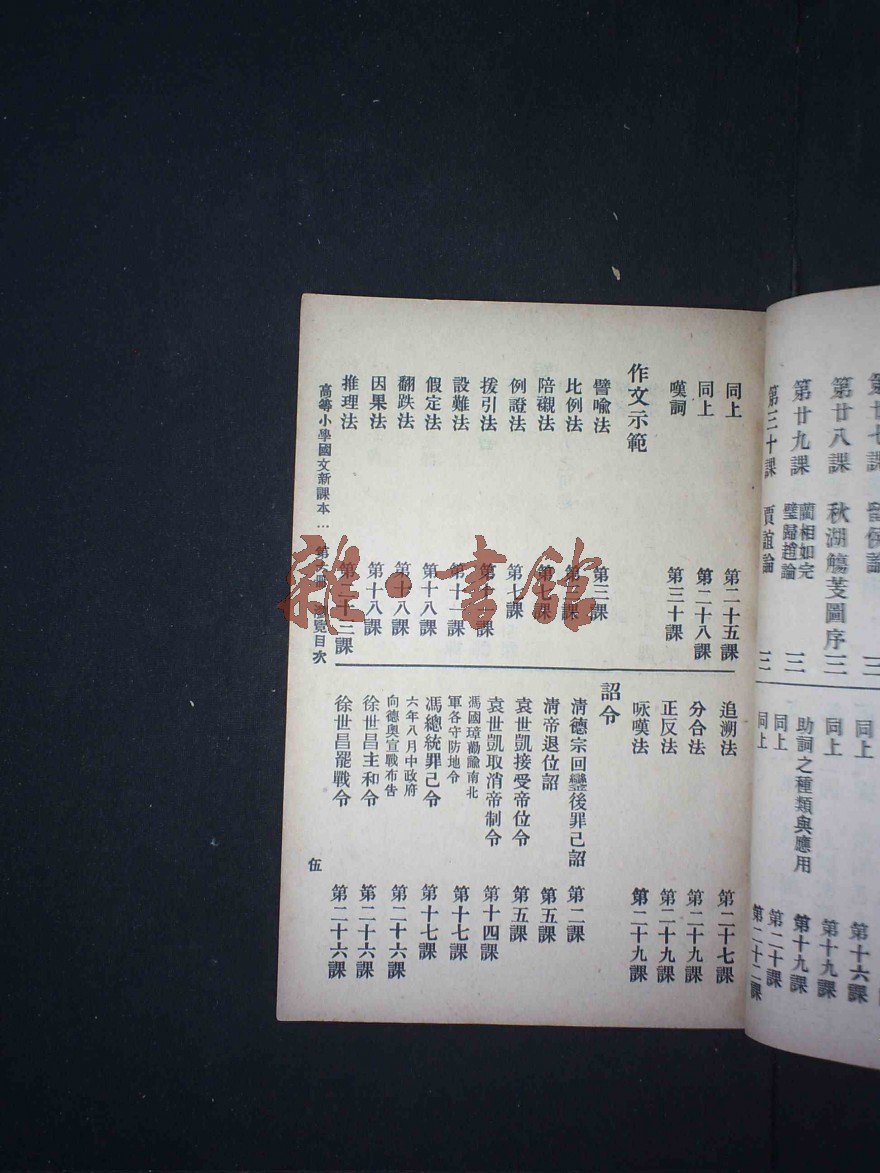 第廿八課 秋湖觴芰圖序 三
第廿九課 藺相如完璧歸趙論 三
第三十課 賈誼論 三
同上 第十六課
同上 第十九課
助詞之種類與應用 第十九課
同上 第二十課
同上 第二十二課
同上 第二十五課
同上 第二十八課
嘆詞 第三十課
作文示範
譬喻法 第三課
比例法
陪襯法 第七課
例證法 第七課
援引法 第十一課
設難法 第十一課
假定法 第十八課
翻跌法 第十八課
因果法 第十八課
推理法 第二十三課
追溯法 第二十七課
分合法 第二十九課
正反法 第二十九課
咏嘆法 第二十九課
詔令
清德宗回鑾後罪己詔 第二課
清帝退位詔 第五課
袁世凱接受帝位令 第五課
袁世凱取消帝制令 第十四課
馮國璋勸諭南北軍各守防地令 第十七課
馮總統罪己令 第十七課
六年八月中政府向德奧宣戰布告 第二十六課
徐世昌主和令 第二十六課
徐世昌罷戰令 第二十六課
高等小學國文新課本
目次
伍
雜·書館